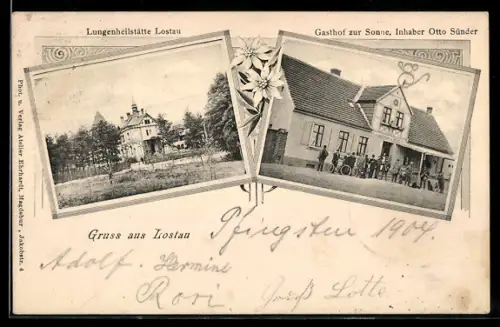 Lungenheilstätte Lostau
Gasthof zur Sonne, Inhaber Otto Sünder
Phot. u. Verlag Atelier Ehrhardt, Magdebur , Jakobstr. 4
Gruss aus Lostau
Pfingsten 1904.
Adolf. Hermine
Rori Gruß Lotte